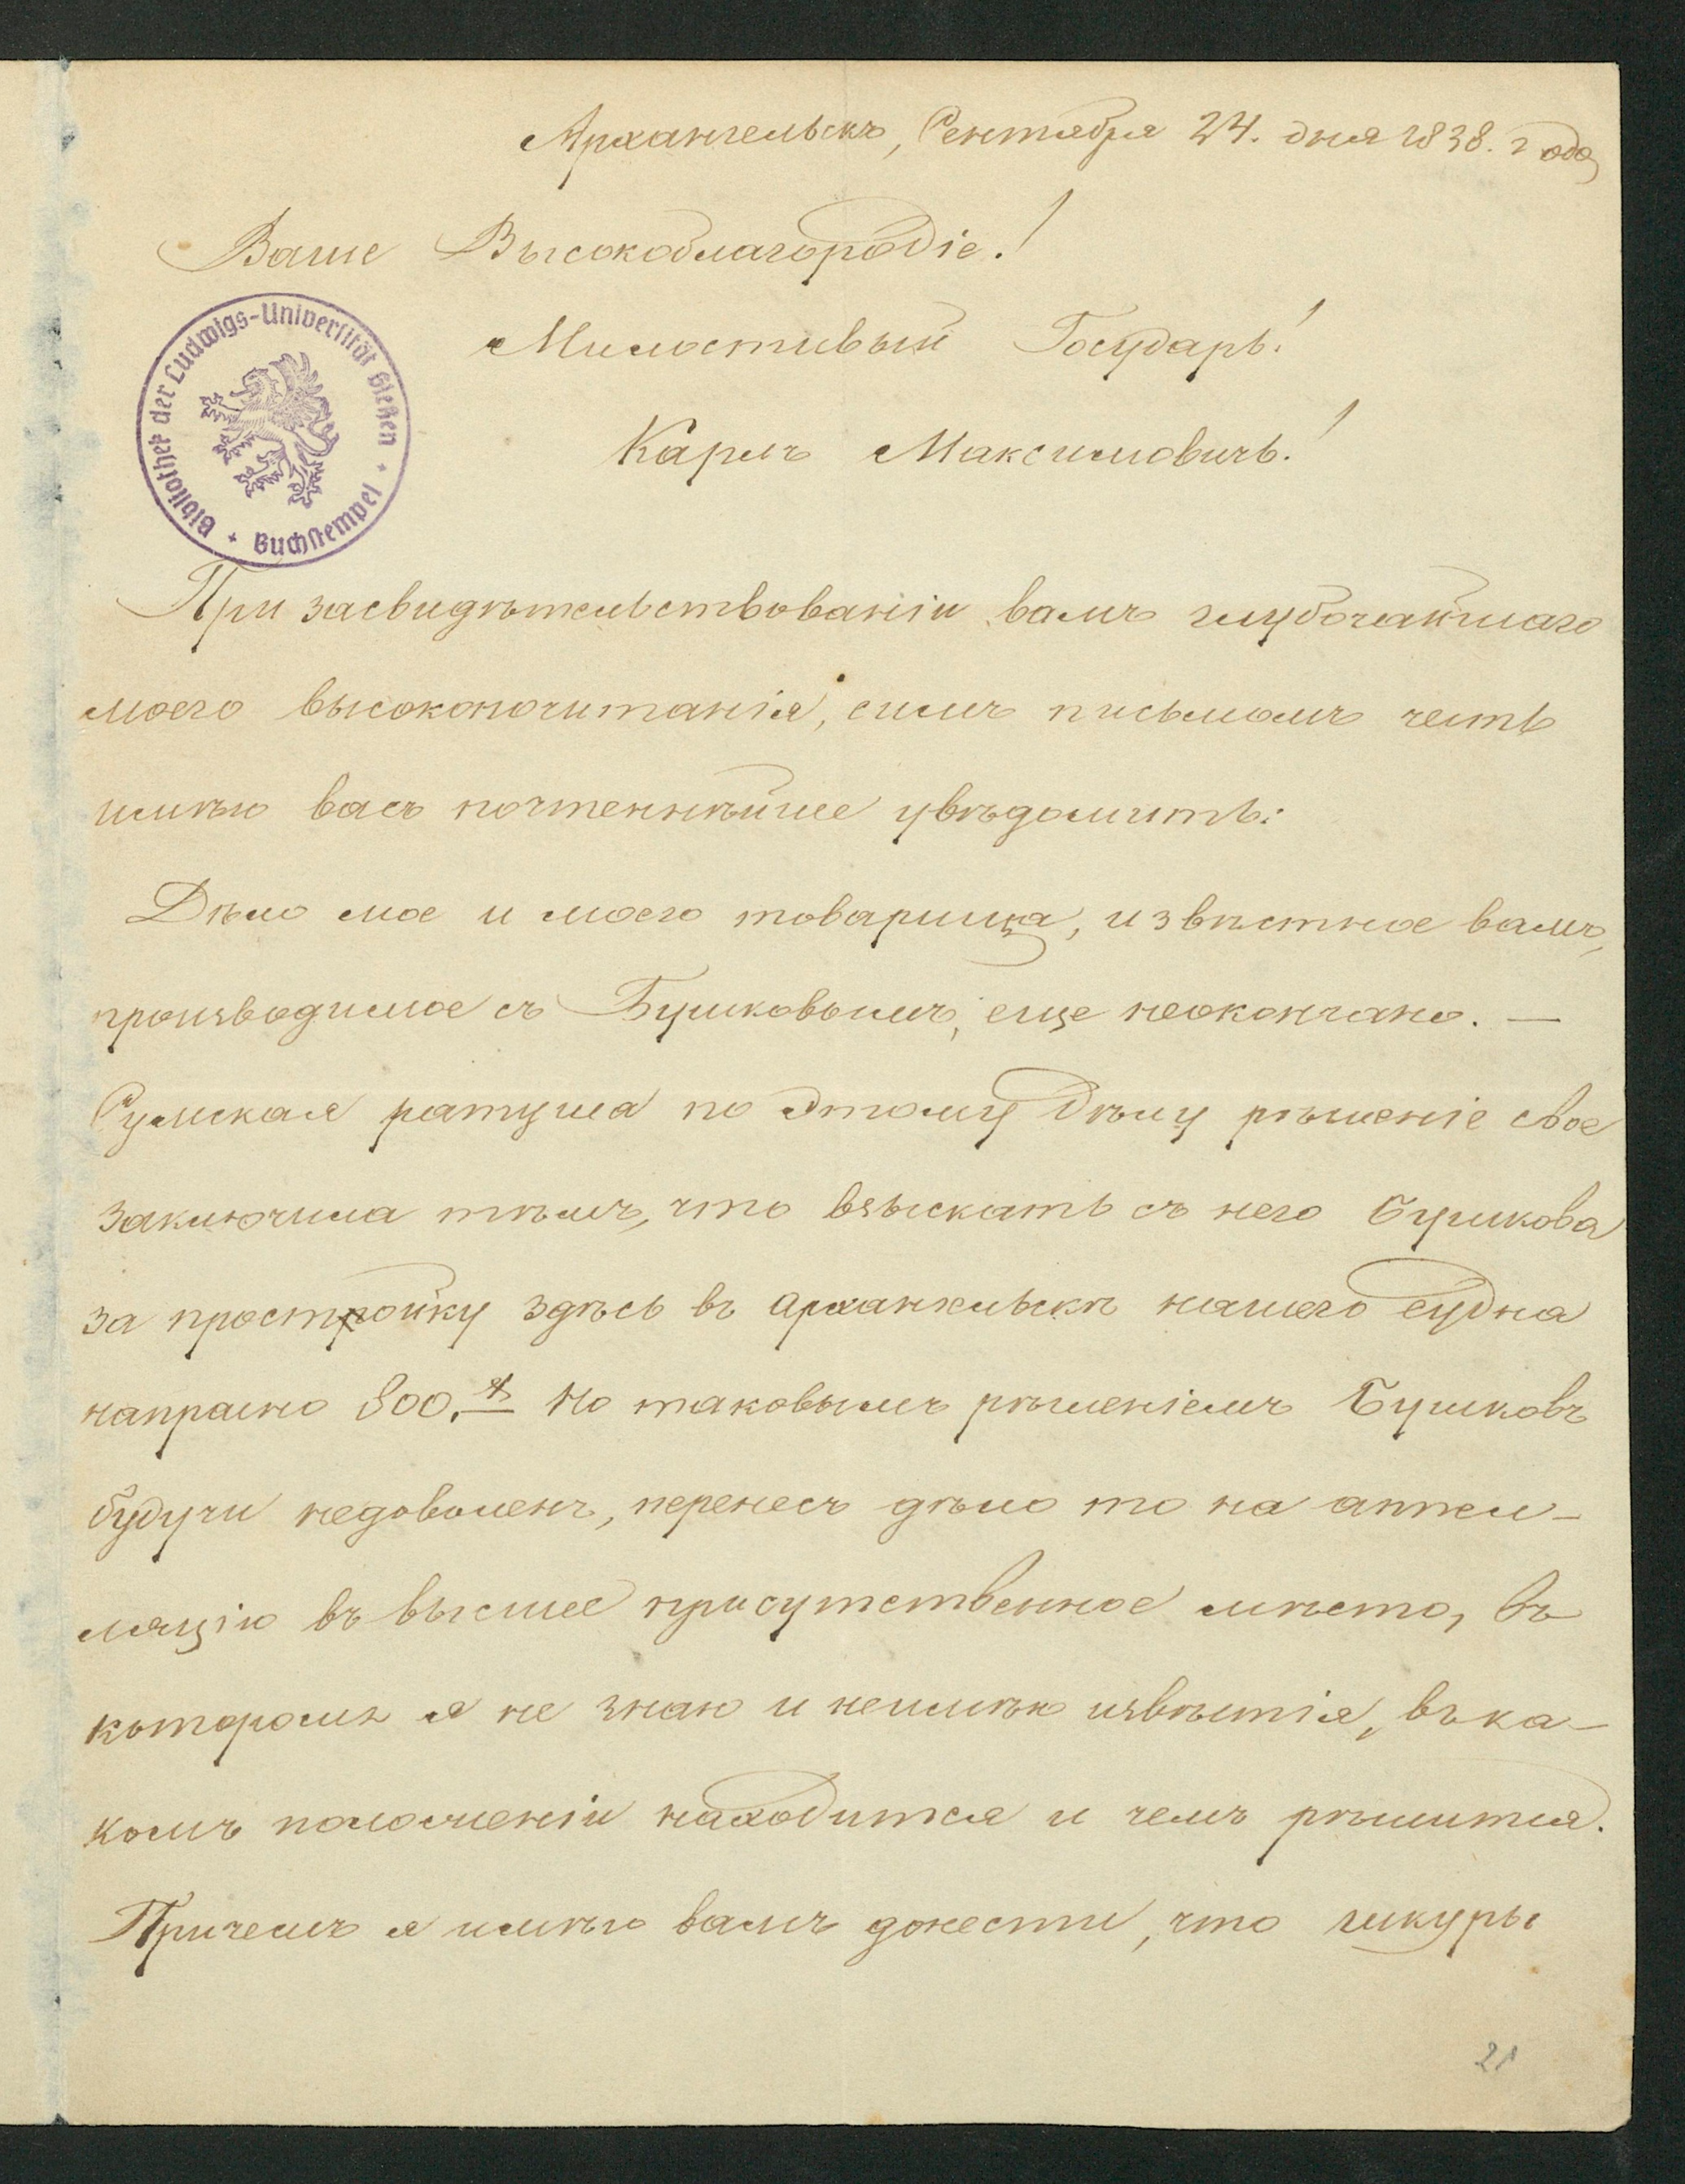 Архангельскъ, Сентября 24. дня 1838. года
Ваше Высокоблагородіе!
Милостивый Государь!
Карлъ Максимовичь!
Bibliothek der Ludwigs-Universität Gießen + Buchstempel +
При засвидѣтельствованіи вамъ глубочайшаго
моего высокопочитанія, симъ письмомъ честь
имѣю васъ почтеннѣйше увѣдомить:
Дѣло мое и моего товарища, извѣстное вамъ,
производимое съ Бушковымъ, еще неокончано. —
Сумская ратуша по этому дѣлу рѣшеніе свое
заключила тѣмъ, что взыскать съ него Бушкова
за простройку здѣсь въ Архангельскѣ нашего судна
напрасно 800. Но таковымъ рѣшеніемъ Бушковъ
будучи недоволенъ, перенесъ дѣло то на аппел-
ляцію въ высшее присутственное мѣсто, въ
которомъ я не знаю и неимѣю извѣстія, въ ка-
комъ положеніи находится и чемъ рѣшится.
Причемъ я имѣю вамъ донести, что шкуры
21